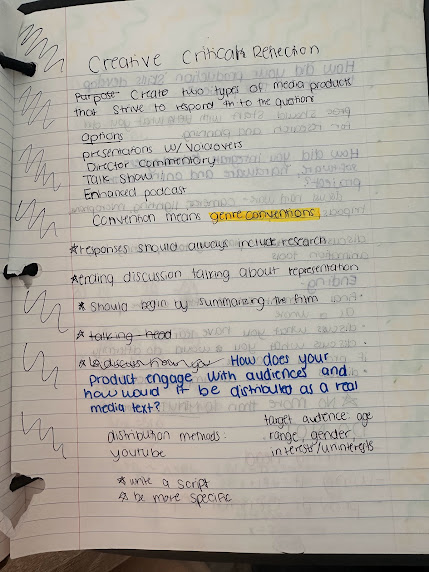 Creative Critical Reflection
Purpose- Create two types of media products
that strive to respond to the quotion
Options
presentations w/ voicovers
Director Commentary
Talk Show
Enhanced podcast
Convention means genre conventions
*responses should always include research
*ending discussion talking about representation
* Should begin by summarizing the film
* talking-head
* discuss how you How does your
product engage with audiences and
how would it be distributed as a real
media text?
target audience: age
range, gender,
interests/uninterests
distribution methods:
youtube
* write a script
* be more specific